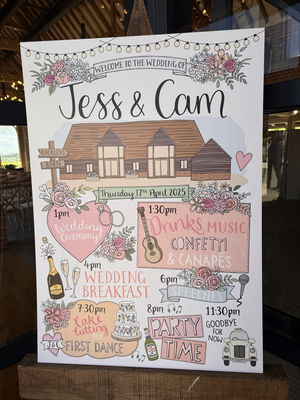 WELCOME TO THE WEDDING OF
Jess & Cam
Thursday 17th April 2025
1pm
Wedding
Ceremony!
1:30pm
Drinks, MUSIC
CONFETTI
& CANAPÉS
4pm
WEDDING
BREAKFAST
6pm
SPEECHES
7:30pm
Cake
Cutting
&
FIRST DANCE
8pm
PARTY
TIME
11:30pm
GOODBYE
FOR NOW